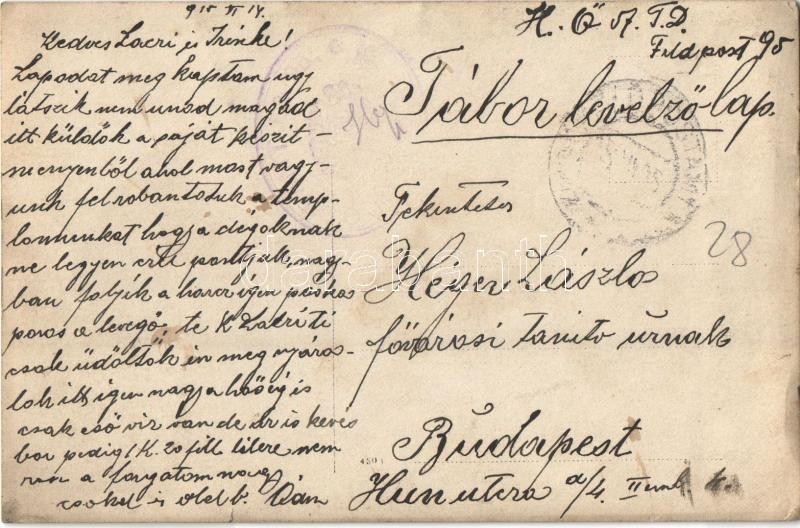 915 VI 14.
Kedves Laczi és Irénke!
Lapodat meg kaptam ugy
látszik nem unod magad
itt küldök a saját készit-
ményenből ahol most vagy-
unk felrobantottuk a temp-
lomunkat hogy a
ne legyen pontjuk, nagy-
ban folyik a harcz igen piszkos
poros a levegő, te K Laczi ti
csak üdöltök én meg nyáro-
lok itt igen nagy a hőség is
csak eső viz van de az is kevés
bor pedig 1 K. 20 fill litere nem
van a forgatom nagy
csókol is ölel b. Ödön
H. Ö
Feldpost 95
Tábori levelző lap.
Tekintetes
Heger László
fővárosi tanitó úrnak
Budapest
Hun utcza a/4. II em.
28
darabanth